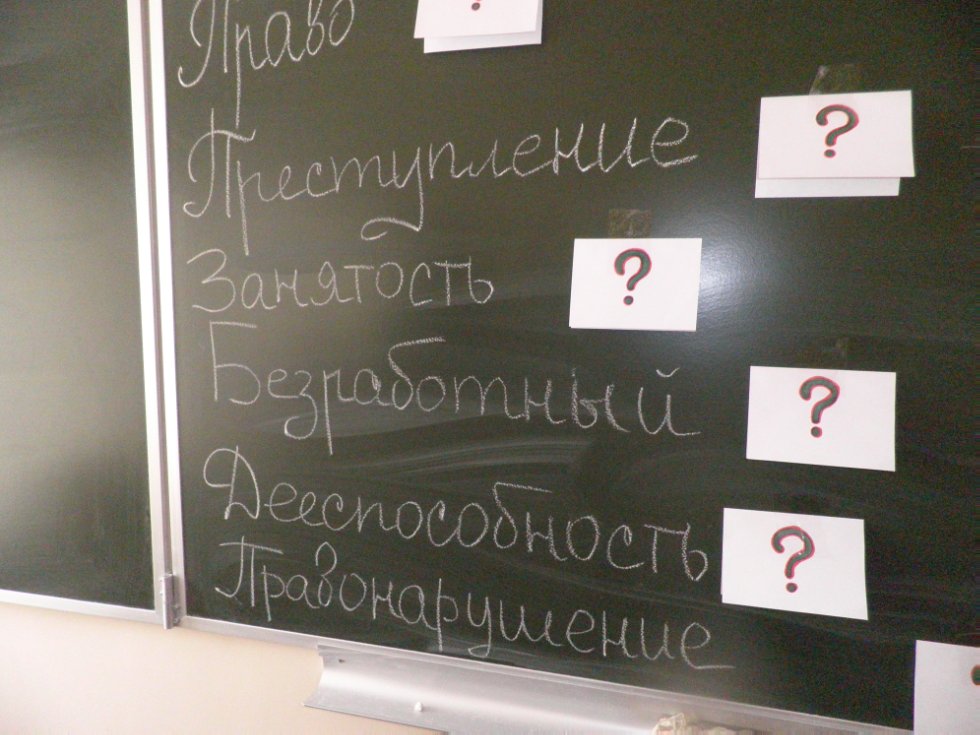 Право ?
Преступление ?
Занятость ?
Безработный ?
Дееспособность ?
Правонарушение